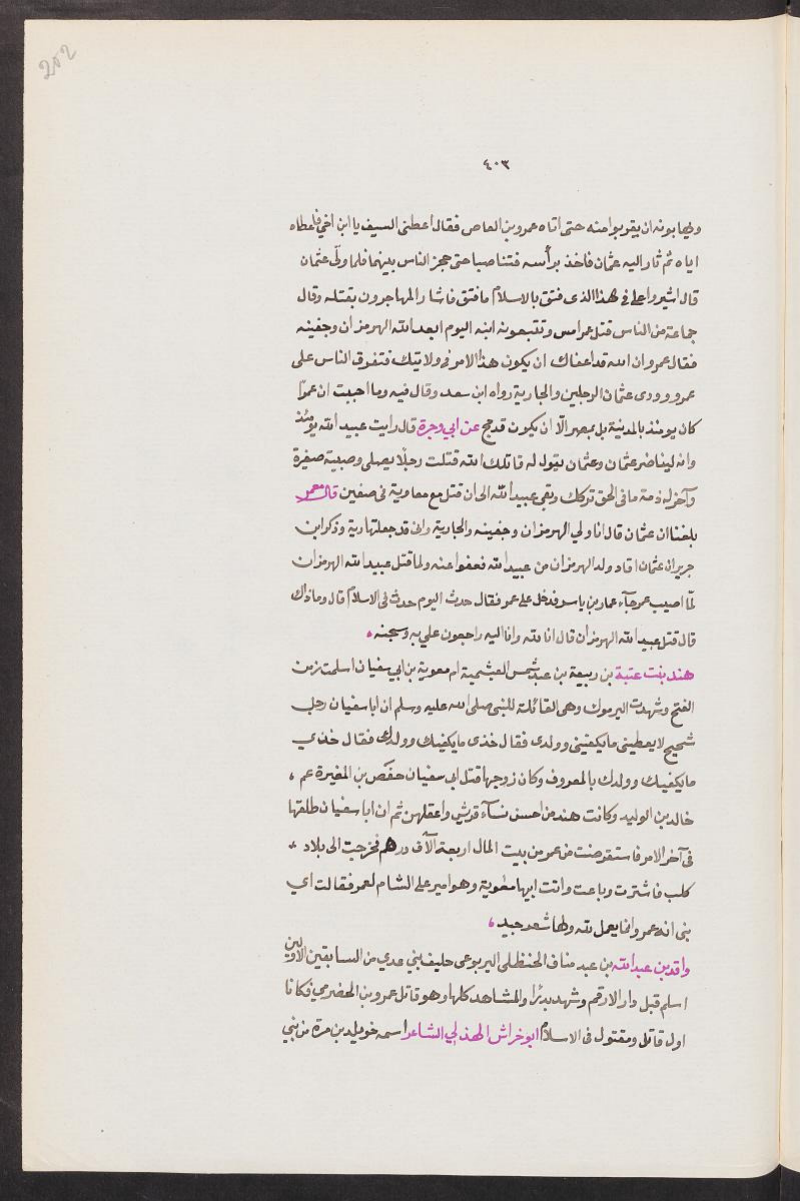 202
٤٠٣
ويهابونه ان يقربوا منه حتى اتاه عمرو بن العاص فقال اعطنى السيف يا ابن اخي فاعطاه
اياه ثم ثار اليه عثمان فاخذ برأسه فتناصبا حتى حجز الناس بينهما فلما ولّى عثمان
قال اشيروا على فى هذا الذى فتق بالاسلام ما فتق فاشار المهاجرون بقتله وقال
جماعة من الناس قتل عمر امس وتتبعونه ابنه اليوم ابعد الله الهرمزان وجفينه
فقال عمرو ان الله قد اعفاك ان يكون هذا الامر فى ولايتك فتفرق الناس على
عمرو وودى عثمان الرجلين والجارية رواه ابن سعد وقال فيه وما احببت ان عمرًا
كان يومئذ بالمدينة بل بمصر الّا ان يكون قد حج عن ابي وجرة قال رايت عبيد الله يومئذ
وانه ليناصر عثمان وعثمان يقول له قاتلك الله قتلت رجلًا يصلى وصبية صغيرة
وآخر له ذمة ما فى الحق تركك وبقى عبيد الله الى ان قتل مع معاوية فى صفين قال معمر
بلغنا ان عثمان قال انا ولي الهرمزان وجفينه والجارية وانى قد جعلتها دية وذكر ابن
جرير ان عثمان اقاد ولد الهرمزان من عبيد الله فعفوا عنه ولما قتل عبيد الله الهرمزان
لمّا اصيب عمر جآء عمار بن ياسر فدخل على عمر فقال حدث اليوم حدث فى الاسلام قال وماذاك
قال قتل عبيد الله الهرمزان قال انا لله وانا اليه راجعون علي به وسجنه
هند بنت عتبة بن ربيعة بن عبد شمس العبشمية ام معوية بن ابي سفيان اسلمت زمن
الفتح وشهدت اليرموك وهى القائلة للنبى صلى الله عليه وسلم ان ابا سفيان رجل
شحيح لا يعطينى ما يكفينى وولدى فقال خذى ما يكفيك وولدك فقال خذي
ما يكفيك وولدك بالمعروف وكان زوجها قبل ابى سفيان حفص بن المغيرة عم ،
خالد بن الوليد وكانت هند من احسن نسآء قريش واعقلهن ثم ان ابا سفيان طلقها
فى آخر الامر فاستقرضت من عمر من بيت المال اربعة آلاف درهم فخرجت الى بلاد ،
كلب فاشترت وباعت واتت ابنها معوية وهو امير على الشام لعمر فقالت اي
بنى انه عمر وانما يعمل لله ولها شعر جيد ،
واقد بن عبد الله بن عبد مناف الحنظلى اليربوعى حليف بني عدي من السابقين الاولين
اسلم قبل دار الارقم وشهد بدرًا والمشاهد كلها وهو قاتل عمرو بن الحضرمي فكانا
اول قاتل ومقتول فى الاسلام ابو خراش الهذلي الشاعر اسمه خويلد بن مرة من بني